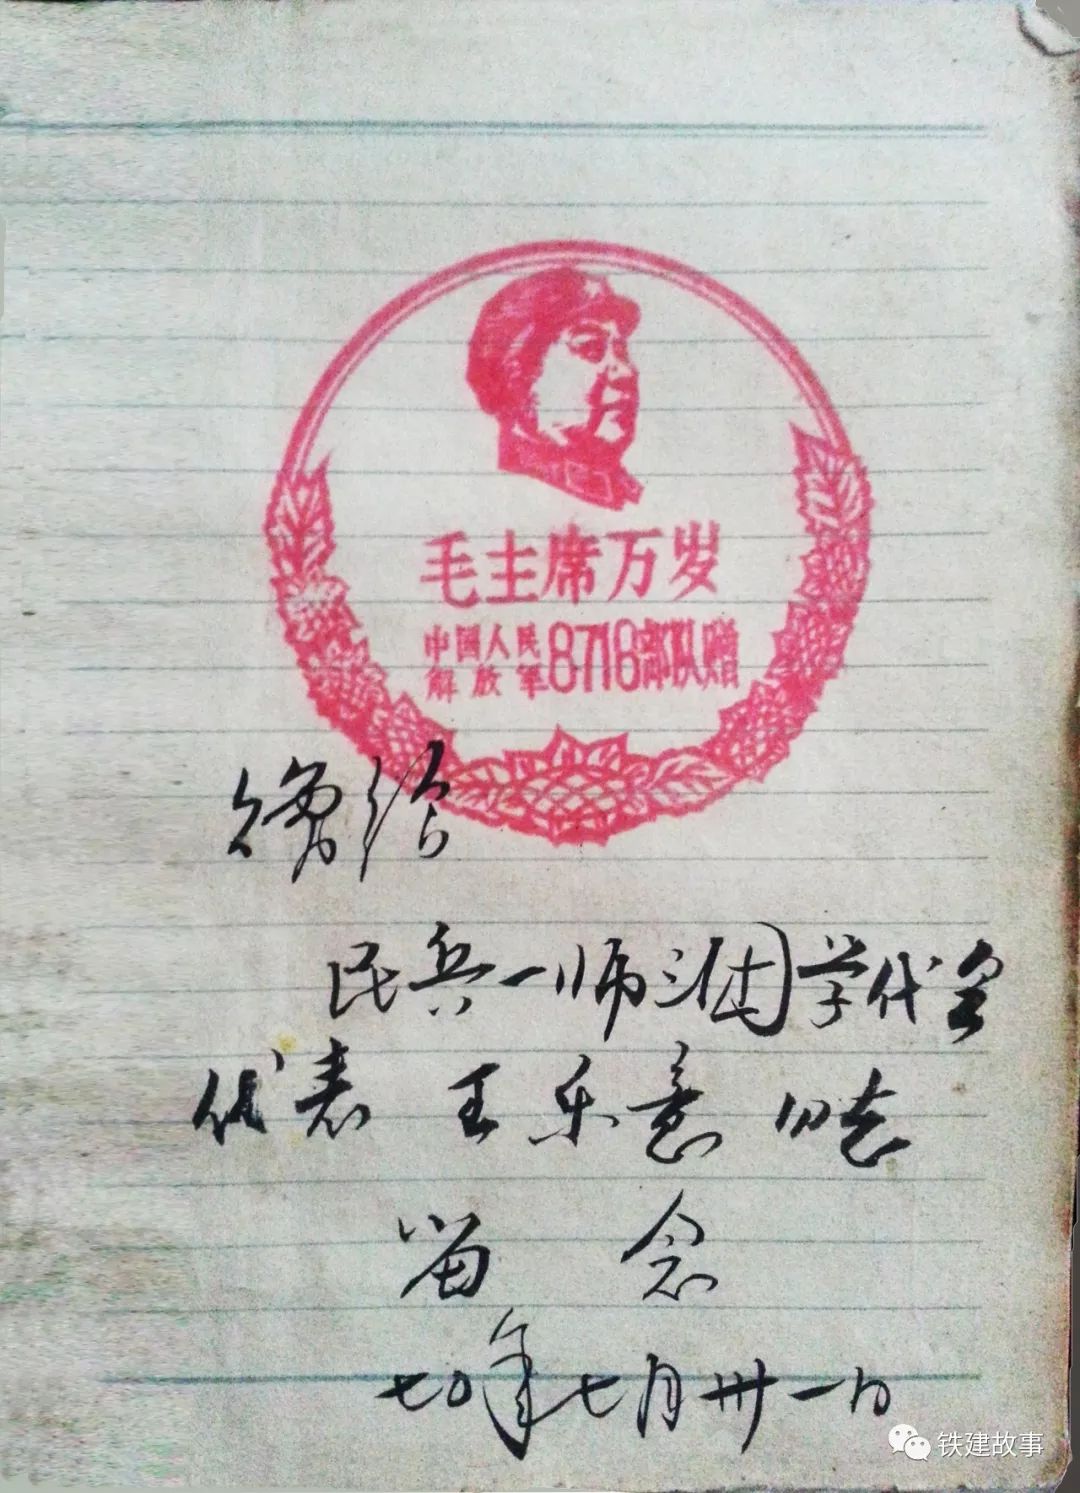 毛主席万岁
中国人民
解放军
8718部队赠
赠给
民兵一师三团学代会
代表 王乐意 同志
留 念
七〇年七月卅一日
铁建故事